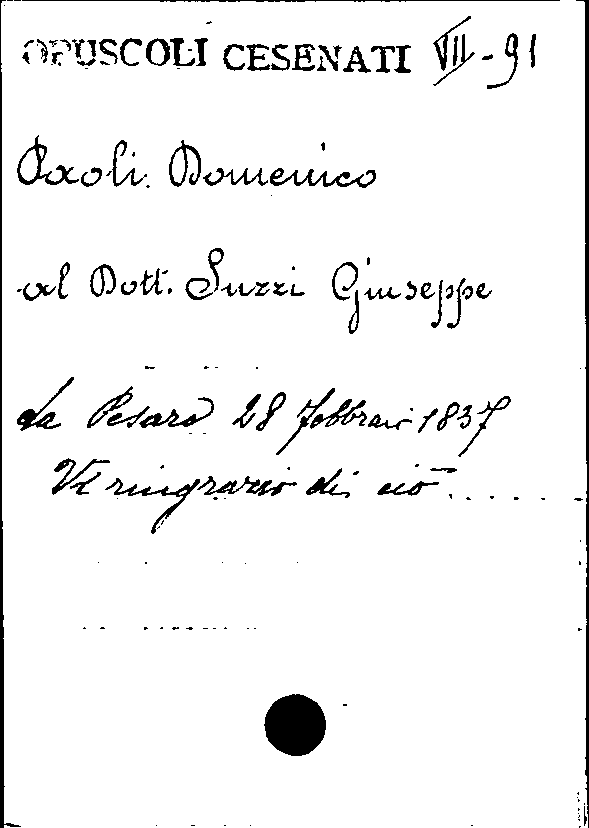 OPUSCOLI CESENATI VII-91
Paoli Domenico
al Dott. Suzzi Giuseppe
da Pesaro 28 febbraio 1837
Vi ringrazio di ciò .....